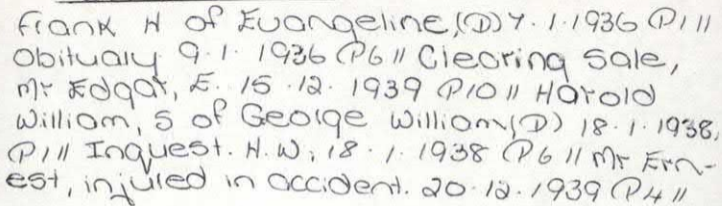 Frank H of Evangeline,(D) 7.1.1936 (P1 //
Obituary 9.1.1936 (P6 // Clearing Sale,
Mr Edgar, E. 15.12.1939 (P10 // Harold
William, S of George William (D) 18.1.1938,
(P1 // Inquest. H.W, 18.1.1938 (P6 // Mr Ern-
est, injured in accident. 20.12.1939 (P4 //